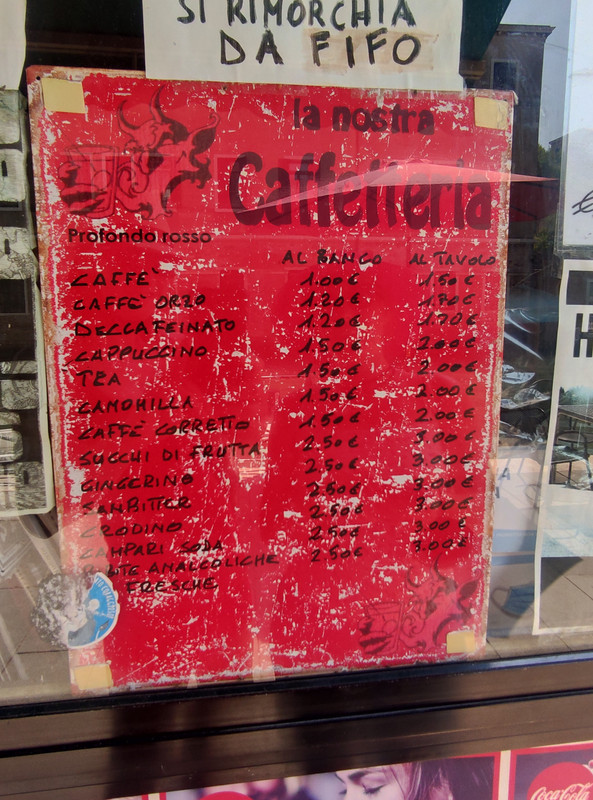 SI RIMORCHIA
DA FIFO
la nostra
Caffetteria
Profondo rosso
AL BANCO AL TAVOLO
CAFFÈ 1.00€ 1.50€
CAFFÈ ORZO 1.20€ 1.70€
DECCAFEINATO 1.20€ 1.70€
CAPPUCCINO 1.50€ 2.00€
TEA 1.50€ 2.00€
CAMOMILLA 1.50€ 2.00€
CAFFÈ CORRETTO 1.50€ 2.00€
SUCCHI DI FRUTTA 2.50€ 3.00€
GINGERINO 2.50€ 3.00€
SANBITTER 2.50€ 3.00€
CRODINO 2.50€ 3.00€
CAMPARI SODA 2.50€ 3.00€
BIBITE ANALCOLICHE 2.50€ 3.00€
FRESCHE
H
Coca-Cola